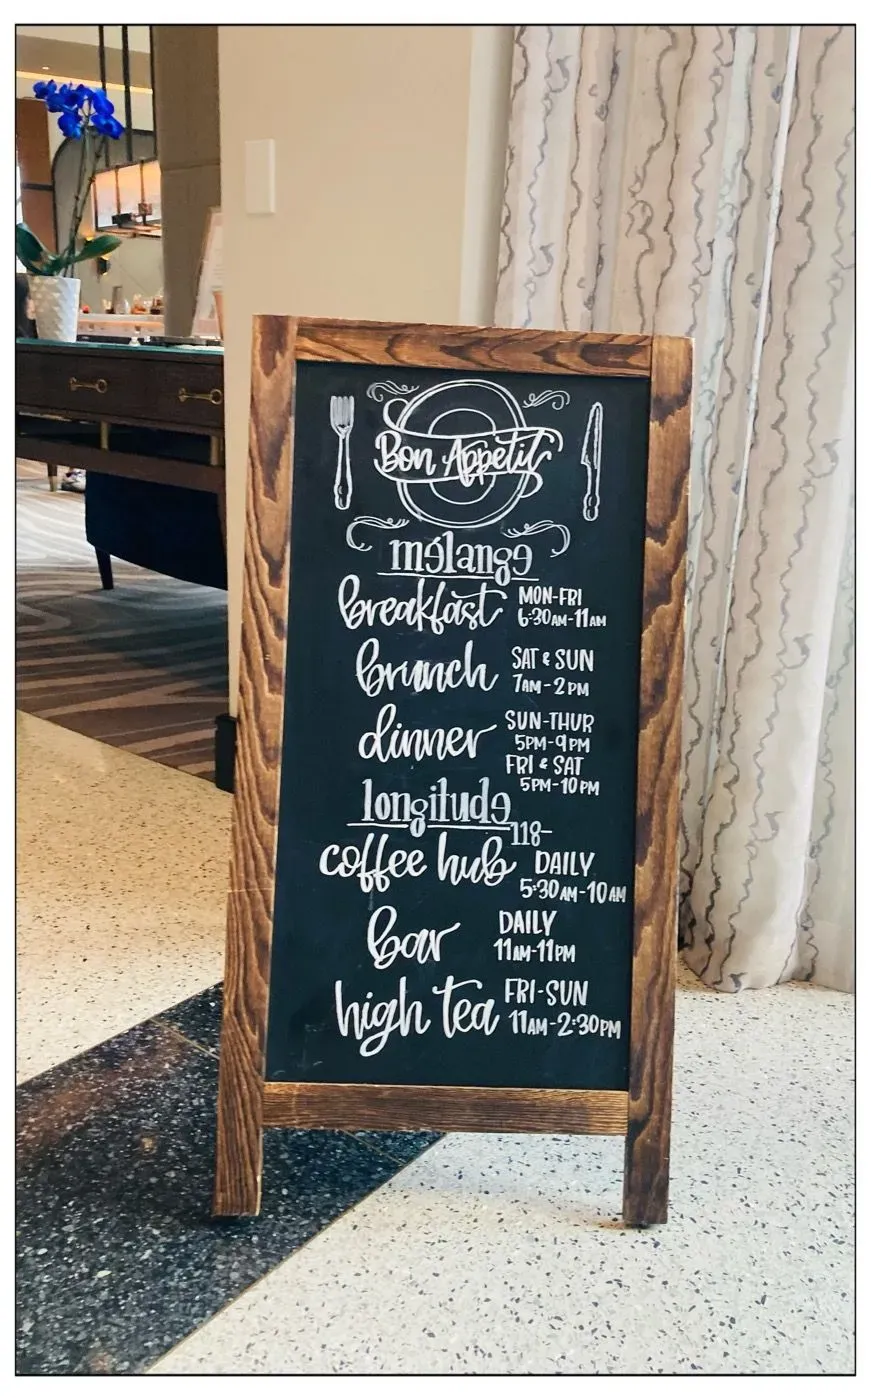 Bon Appetit
mélange
breakfast MON-FRI
6:30AM-11AM
brunch SAT & SUN
7AM-2PM
dinner SUN-THUR
5PM-9PM
FRI & SAT
5PM-10PM
longitude
118-
coffee hub DAILY
5:30AM-10AM
bar DAILY
11AM-11PM
high tea FRI-SUN
11AM-2:30PM